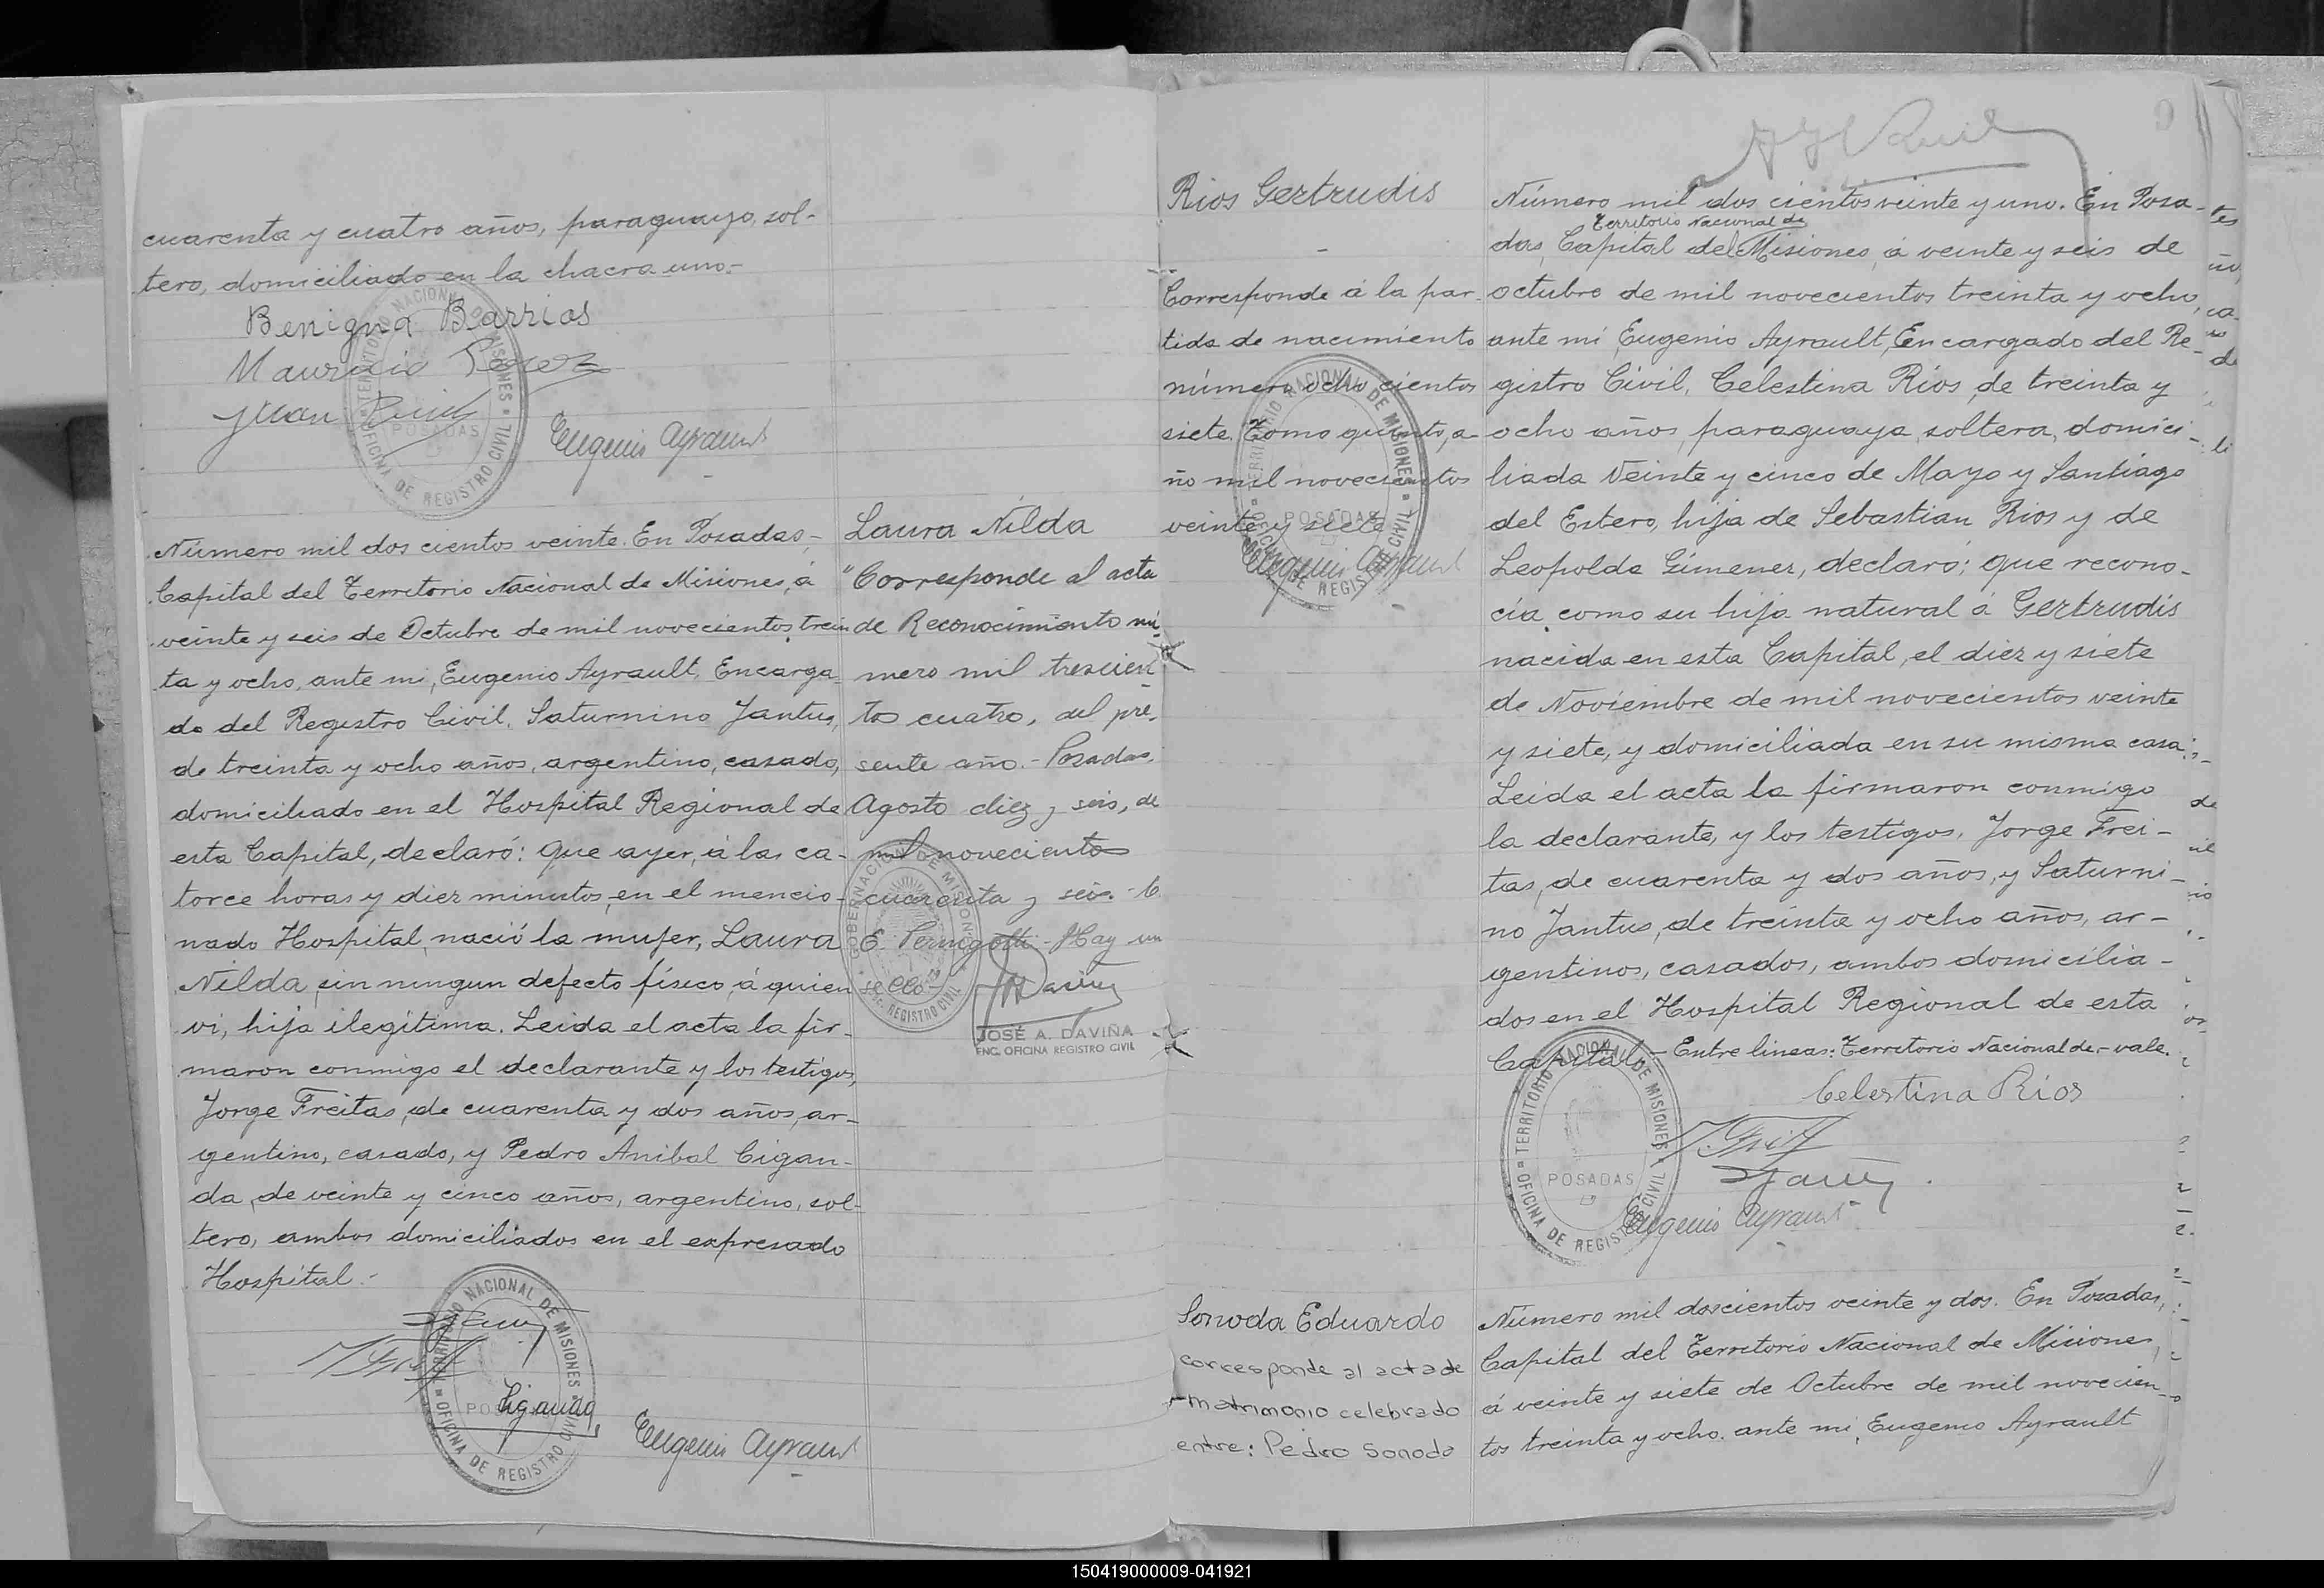 cuarenta y cuatro años, paraguayo, sol-
tero, domiciliado en la chacra uno.-
Benigna Barrios
Mauricio Perez
Juan Ruiz
Eugenio Ayrault
TERRITORIO NACIONAL DE MISIONES
POSADAS
OFICINA DE REGISTRO CIVIL
Número mil dos cientos veinte. En Posadas,-
Capital del Territorio Nacional de Misiones, á
veinte y seis de Octubre de mil novecientos trein
ta y ocho, ante mi, Eugenio Ayrault, Encarga-
do del Registro Civil, Saturnino Jantus,
de treinta y ocho años, argentino, casado,
domiciliado en el Hospital Regional de
esta Capital, declaró: que ayer, á las ca-
torce horas y diez minutos, en el mencio-
nado Hospital, nació la mujer, Laura
Nilda, sin ningun defecto físico, á quien
vi, hija ilegítima. Leida el acta la fir-
maron conmigo el declarante y los testigos,
Jorge Freitas, de cuarenta y dos años, ar-
gentino, casado, y Pedro Anibal Cigan-
da, de veinte y cinco años, argentino, sol-
tero, ambos domiciliados en el expresado
Hospital.-
Ciganda
Eugenio Ayrault
TERRITORIO NACIONAL DE MISIONES
POSADAS
OFICINA DE REGISTRO CIVIL
Laura Nilda
"Corresponde al acta
de Reconocimiento nú-
mero mil trescien
tos cuatro, del pre-
sente año.- Posadas,
Agosto diez y seis, de
mil novecientos
cuarenta y seis.- C.
E. Pernigotti - Hay un
sello"
GOBERNACION DE MISIONES
REGISTRO CIVIL
JOSÉ A. DAVIÑA
ENC. OFICINA REGISTRO CIVIL
Rios Gertrudis
-
Corresponde á la par-
tida de nacimiento
número ocho cientos
siete. Tomo quinto, a-
ño mil novecientos
veinte y siete
Eugenio Ayrault
TERRITORIO NACIONAL DE MISIONES
POSADAS
OFICINA DE REGISTRO CIVIL
Número mil dos cientos veinte y uno. En Posa-
Territorio Nacional de
das, Capital del Misiones, á veinte y seis de
octubre de mil novecientos treinta y ocho,
ante mi, Eugenio Ayrault, Encargado del Re-
gistro Civil, Celestina Rios, de treinta y
ocho años, paraguaya, soltera, domici-
liada Veinte y cinco de Mayo y Santiago
del Estero, hija de Sebastian Rios y de
Leopolda Gimenez, declaró: que recono-
cía como su hija natural á Gertrudis
nacida en esta Capital, el diez y siete
de Noviembre de mil novecientos veinte
y siete, y domiciliada en su misma casa.
Leida el acta la firmaron conmigo
la declarante, y los testigos, Jorge Frei-
tas, de cuarenta y dos años, y Saturni-
no Jantus, de treinta y ocho años, ar-
gentinos, casados, ambos domicilia-
dos en el Hospital Regional de esta
Capital.- Entre lineas: Territorio Nacional de.- vale.
Celestina Rios
Eugenio Ayrault
TERRITORIO NACIONAL DE MISIONES
POSADAS
OFICINA DE REGISTRO CIVIL
Sonoda Eduardo
corresponde al acta de
matrimonio celebrado
entre: Pedro Sonoda
Número mil doscientos veinte y dos. En Posadas,
Capital del Territorio Nacional de Misiones,
á veinte y siete de Octubre de mil novecien-
tos treinta y ocho, ante mi, Eugenio Ayrault
150419000009-041921